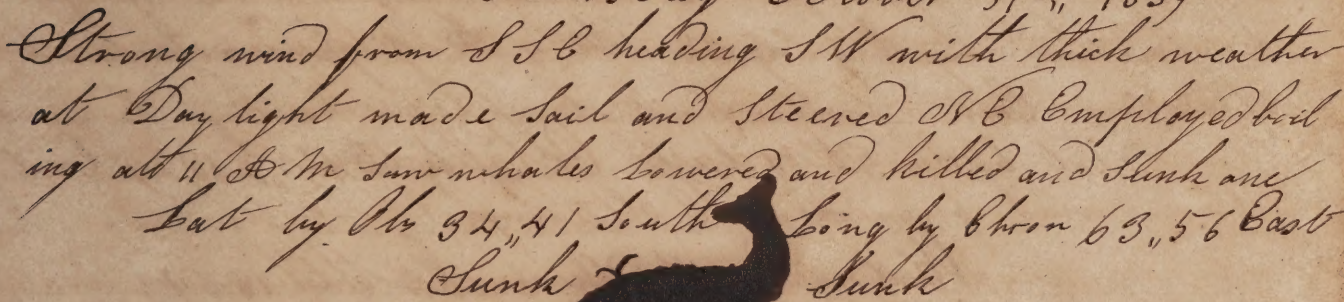 October 31st,, 1839
Strong wind from SSE heading SW with thick weather
at Day light made Sail and Steered NE Employed boil
ing att 11 AM Saw whales Lowered and killed and Sunk one
Lat by Obs 34,,41 South Long by Chron 63,,56 East
Sunk Sunk